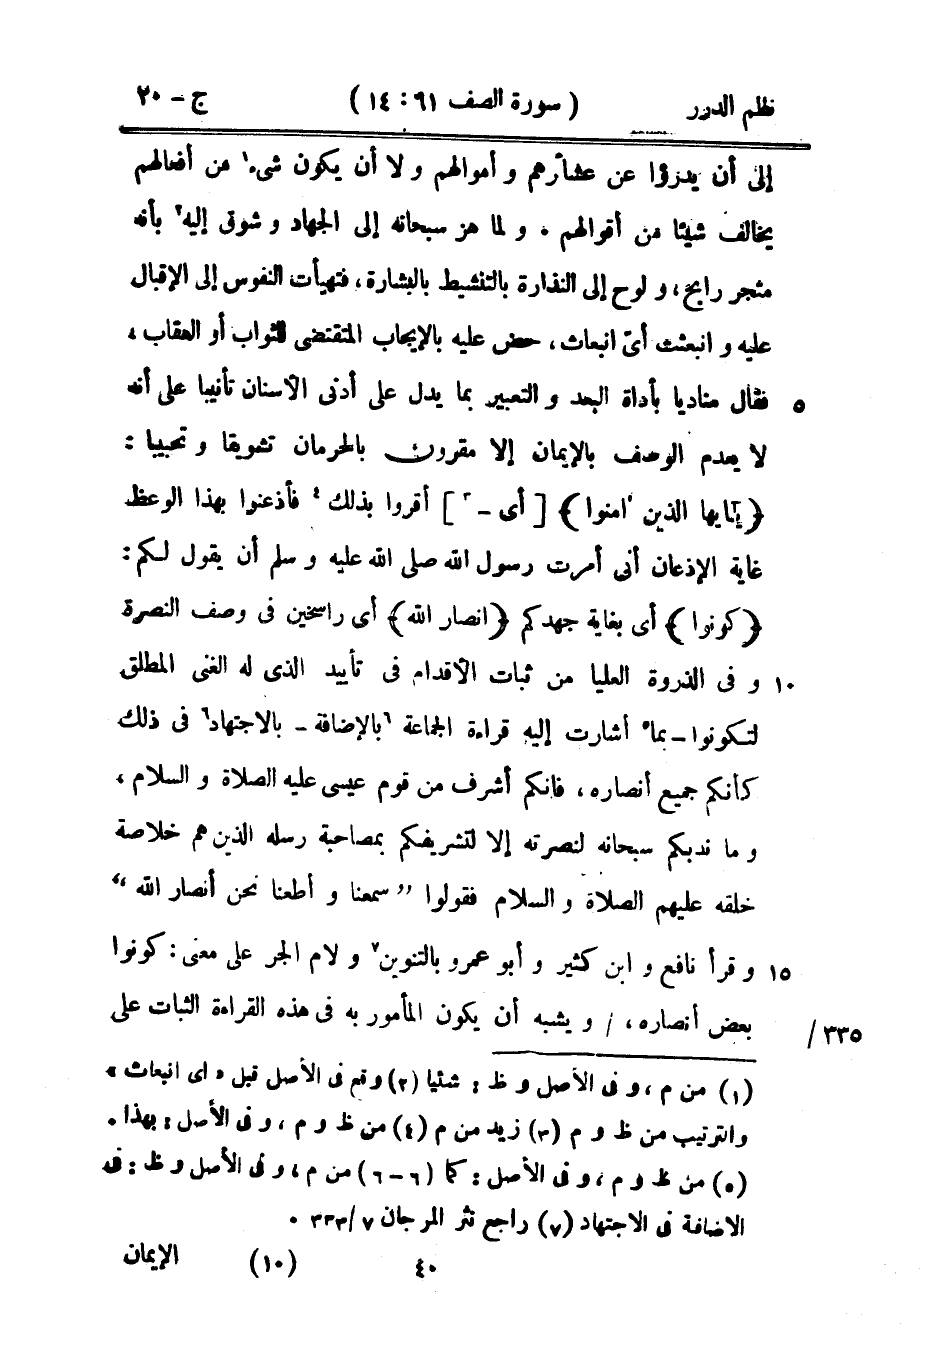 نظم الدرر ( سورة الصف ٦١ : ١٤ ) ج - ٢٠
إلى أن يدرؤا عن عشارهم و أموالهم و لا أن يكون شيء١ من أفعالهم
يخالف شيئا من أقوالهم . و لما هز سبحانه إلى الجهاد و شوق إليه٢ بأنه
متجر رابح، و لوح إلى النذارة بالتنشيط بالبشارة، فتهيأت النفوس إلى الإقبال
عليه و انبعثت أىّ انبعاث، حض عليه بالإيجاب المقتضى للثواب أو العقاب،
فقال مناديا بأداة البعد و التعبير بما يدل على أدنى الأسنان تأنيبا على أنه ٥
لا يعدم الوصف بالإيمان إلا مقرون بالحرمان تشويقا و تحبيبا :
﴿ يٰٓايها الذين اٰمنوا ﴾ [ أى - ٣ ] أقروا بذلك ٤ فأذعنوا بهذا الوعظ
غاية الإذعان أنى أمرت رسول الله صلى الله عليه و سلم أن يقول لكم :
﴿ كونوا ﴾ أى بغاية جهدكم ﴿ انصار الله ﴾ أى راسخين فى وصف النصرة
و فى الذروة العليا من ثبات الأقدام فى تأييد الذى له الغنى المطلق ١٠
لتكونوا - بما٥ أشارت إليه قراءة الجماعة ٦بالإضافة - بالاجتهاد٦ فى ذلك
كأنكم جميع أنصاره، فانكم أشرف من قوم عيسى عليه الصلاة و السلام،
و ما ندبكم سبحانه لنصرته إلا لتشريفكم بمصاحبة رسله الذين هم خلاصة
خلقه عليهم الصلاة و السلام فقولوا " سمعنا و أطعنا نحن أنصار الله "
و قرأ نافع و ابن كثير و أبو عمرو بالتنوين٧ و لام الجر على معنى : كونوا ١٥
بعض أنصاره، / و يشبه أن يكون المأمور به فى هذه القراءة الثبات على ٣٣٥/
(١) من م، و فى الأصل و ظ : شئيا (٢) وقع فى الأصل قبل « اى انبعاث »
والترتيب من ظ و م (٣) زيد من م (٤) من ظ و م، و فى الأصل : بهذا .
(٥) من ظ و م، و فى الأصل : كما (٦-٦) من م، و فى الأصل و ظ : فى
الاضافة فى الاجتهاد (٧) راجع نثر المرجان ٧ /٣٣٣ .
٤٠ (١٠) الإيمان